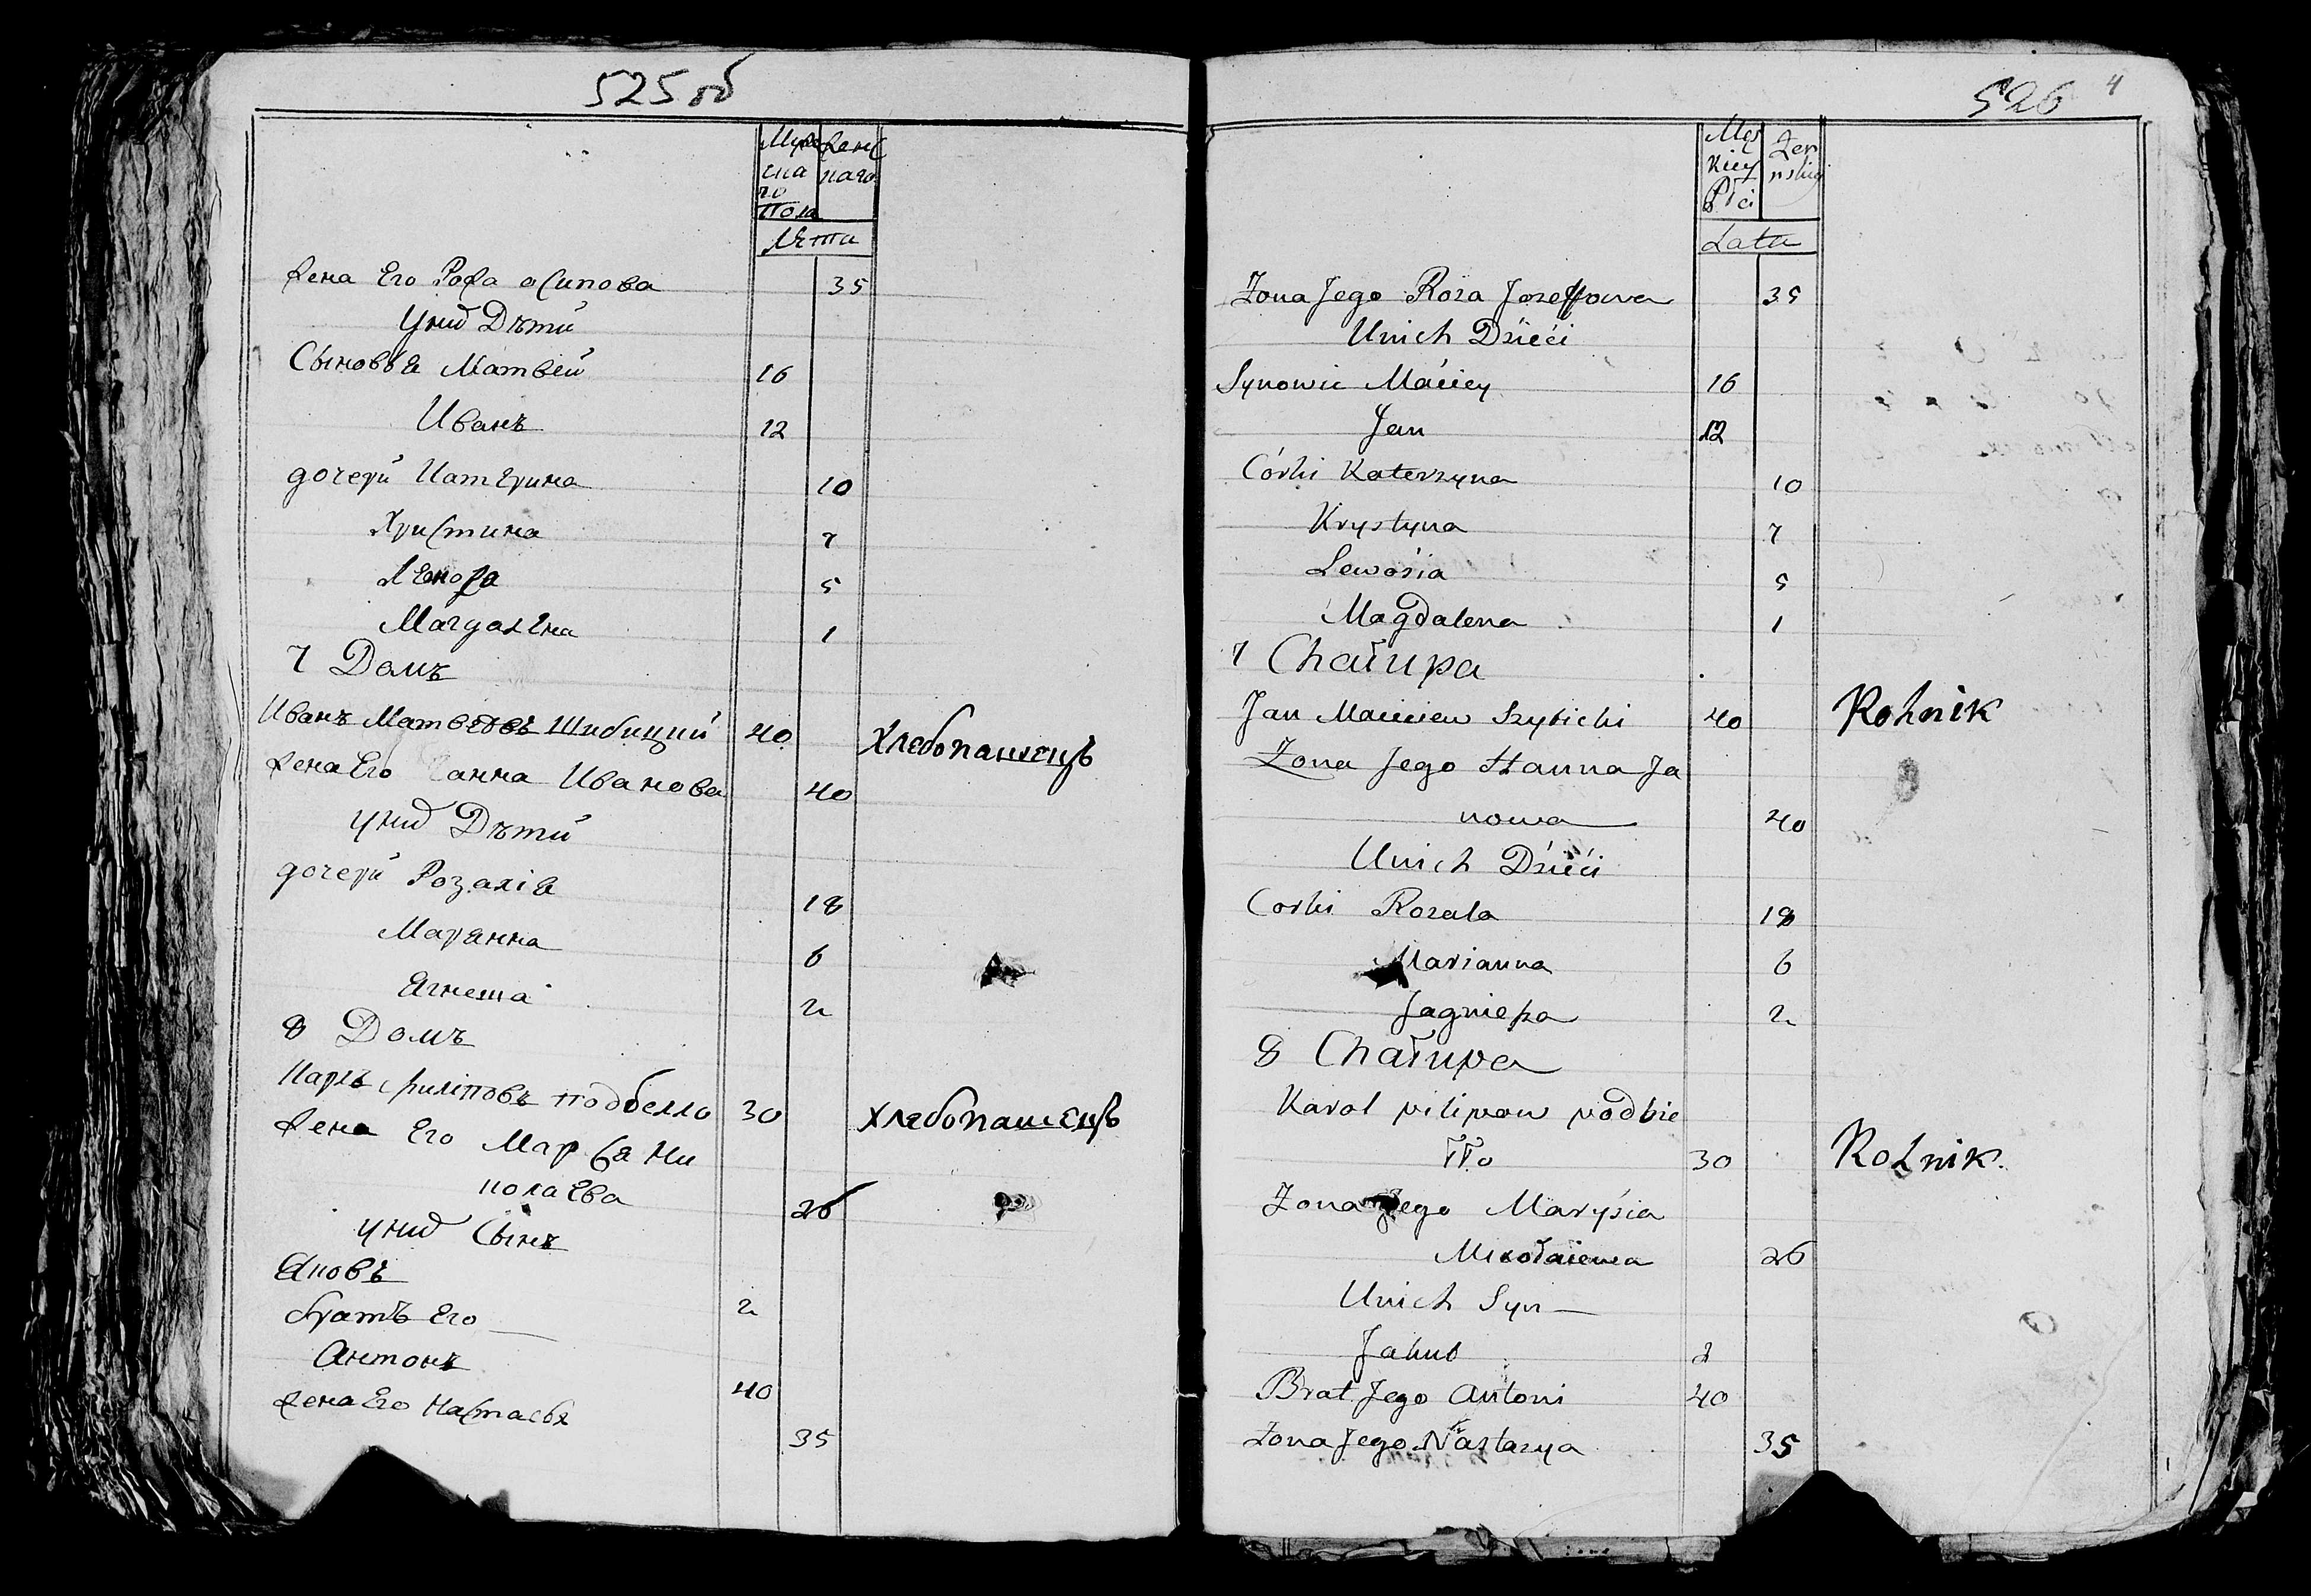 525 об
Муже Женс
ска каго
го
Пола
Лета
Жена Его Роза осипова 35
У них Дѣти
Сыновья Матвей 16
Иванъ 12
дочери Катерина 10
Христина 7
5
Магдалена 1
7 Домъ
Иванъ Матвеевъ Шибицкий 40 Хлебопашецъ
Жена Его Ганна Иванова 40
у них Дѣти
дочери Розалія 18
Марянна 6
Ягнешка 2
8 Домъ
Карлъ Филіповъ подбелло 30 Хлебопашецъ
Жена Его Марься Ни
колаева 26
у них Сынъ
Яковъ 2
братъ Его
Антонъ 40
Жена Его Настасья 35
526 4
Męs Żen
kiey nskiey
Płci
Lata
Żona Jego Roza Jozeffowa 35
Unich Dzieći
Synowie Maćiey 16
Jan 12
Córki Katerzyna 10
Krystyna 7
Lewosia 5
Magdalena 1
7 Chałupa
Jan Macieiew Szybicki 40 Rolnik
Żona Jego Hanna Ja
nowa 40
Unich Dzieći
Corki Rozala 18
Marianna 6
Jagnieszka 2
8 Chałupa
Karol pilipow podbie
łło 30 Rolnik.
Zona Jego Marysia
Mikołaiewa 26
Unich Syn
Jakub 2
Brat Jego Antoni 40
Żona Jego Nastazya 35